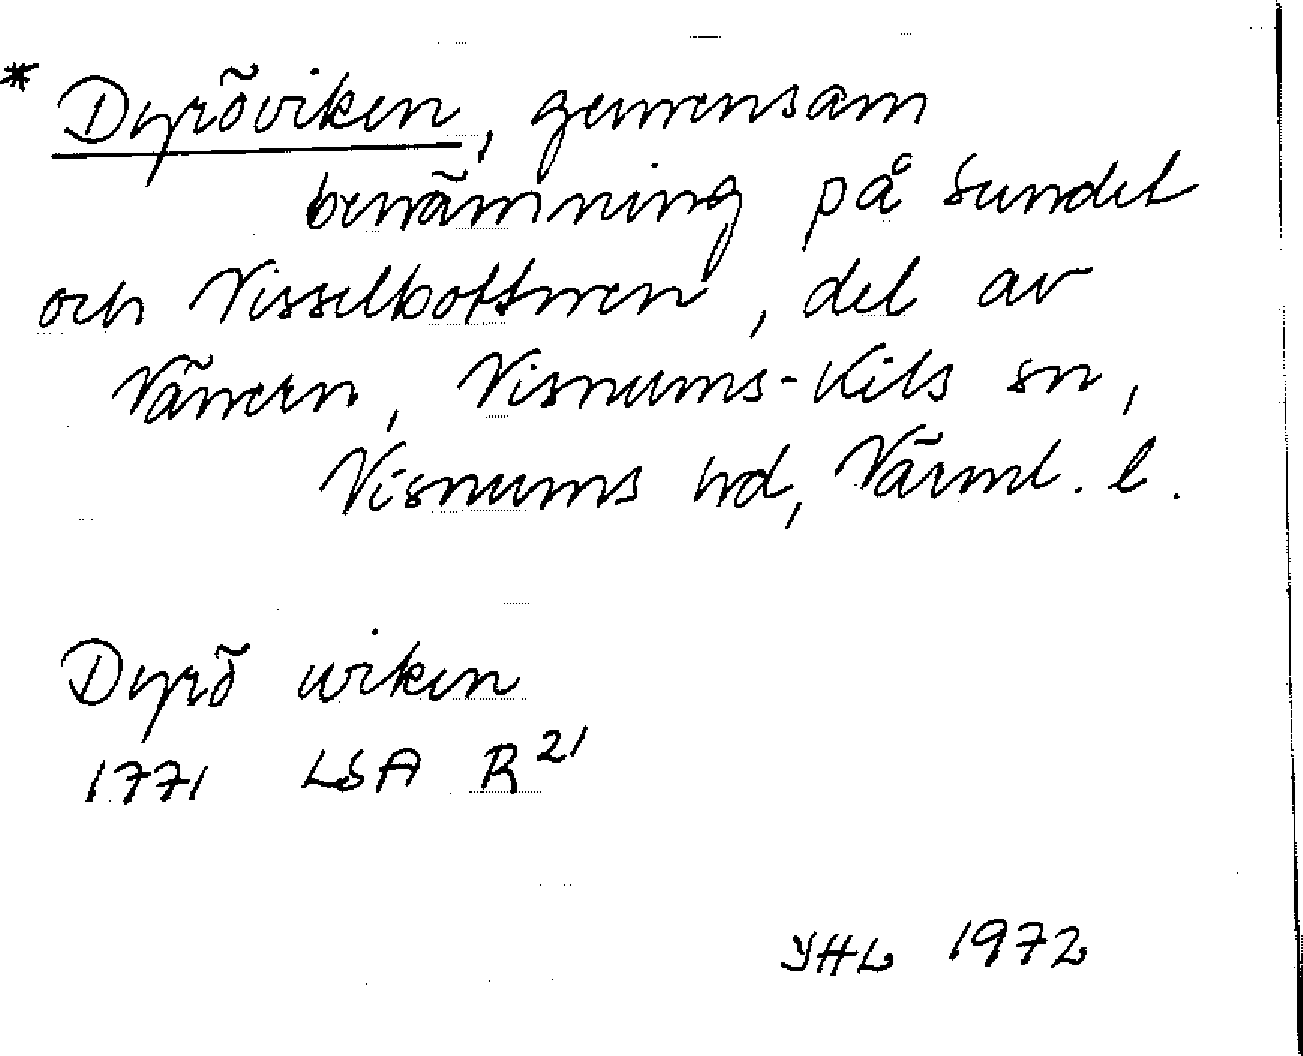 * Dyröviken, gemensam
benämning på Sundet
och Visselbottnen, del av
Vänern, Visnums-Kils sn,
Visnums hd, Värml. l.
Dyrö wiken
1771 LSA R 21
YHL 1972